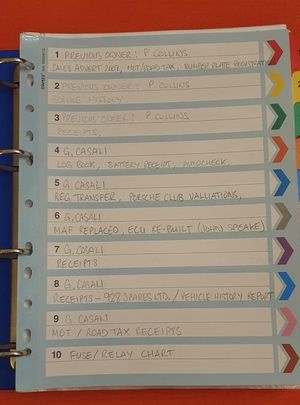 1 PREVIOUS OWNER: P COLLINS
SALES ADVERT 2007, MOT/ROAD TAX, NUMBER PLATE REGISTRATION
2 PREVIOUS OWNER: P COLLINS
SERVICE HISTORY
3 PREVIOUS OWNER: P COLLINS
RECEIPTS,
4 G. CASALI
LOG BOOK, BATTERY RECEIPT, AUTOCHECK,
5 G. CASALI
REG TRANSFER, PORSCHE CLUB VALUATIONS,
6 G. CASALI
MAF REPLACED, ECU RE-BUILT (JOHN SPEAKE)
7 G. CASALI
RECEIPTS
8 G. CASALI
RECEIPTS - 928 SPARES LTD. / VEHICLE HISTORY REPORT
9 G. CASALI
MOT / ROAD TAX RECEIPTS
10 FUSE/RELAY CHART